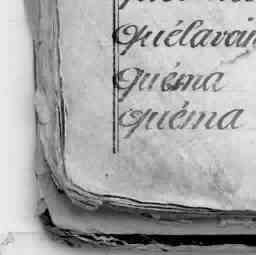 quélavoi
quéma
quéma